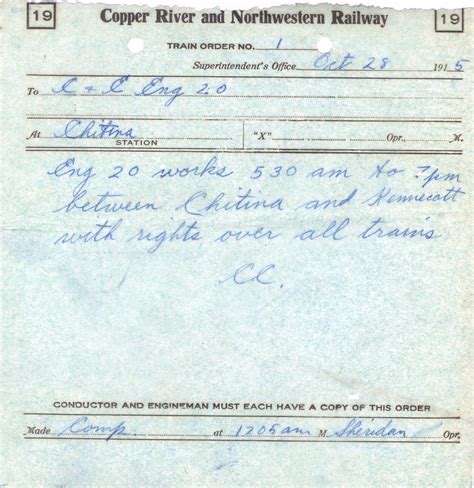 19 Copper River and Northwestern Railway 19
TRAIN ORDER NO. 1
Superintendent's Office Oct 28 1915
To C & E Eng 20
At Chitina "X" Opr., M
STATION
Eng 20 works 530 am to ? pm
between Chitina and Kennecott
with rights over all trains
CC.
CONDUCTOR AND ENGINEMAN MUST EACH HAVE A COPY OF THIS ORDER
Made Comp. at 1205 am M Sheridan Opr.